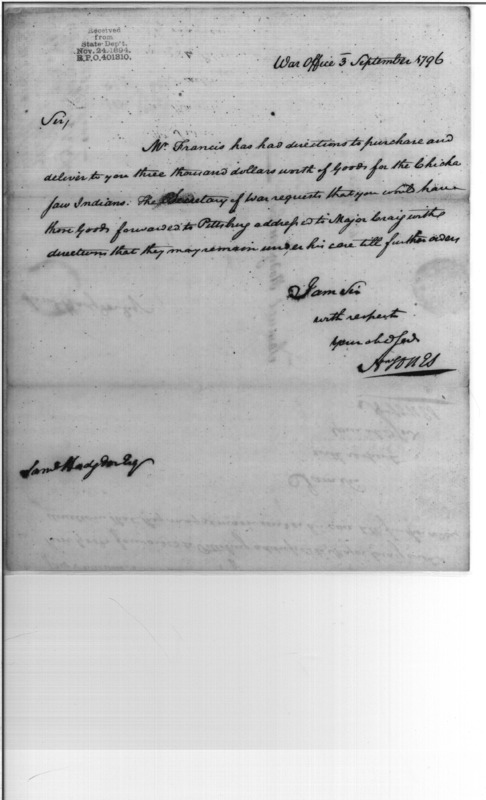 Received
from
State Dep't.
Nov. 24, 1894.
R.P.O. 401810.
War Office 3 September 1796
Sir,
Mr Francis has had directions to purchase and
deliver to you three thousand dollars worth of Goods for the Chicka
saw Indians. The Secretary of War requests that you will have
those Goods forwarded to Pittsburg addressed to Major Craig with
directions that they may remain under his care till further orders
I am Sir
with respect
your obd Serv
Jones
Saml Hodgdon Esq